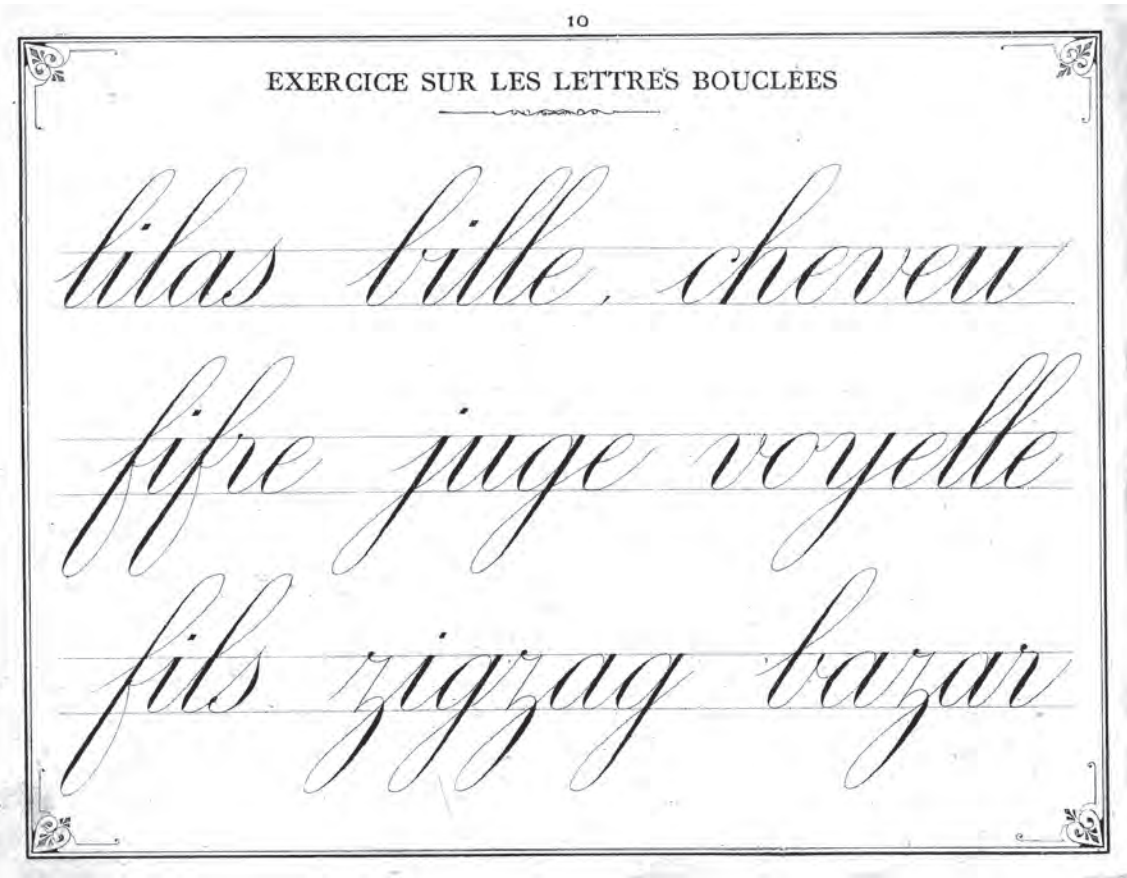 10
EXERCICE SUR LES LETTRES BOUCLÉES
lilas bille, cheveu
fifre juge voyelle
fils zigzag bazar